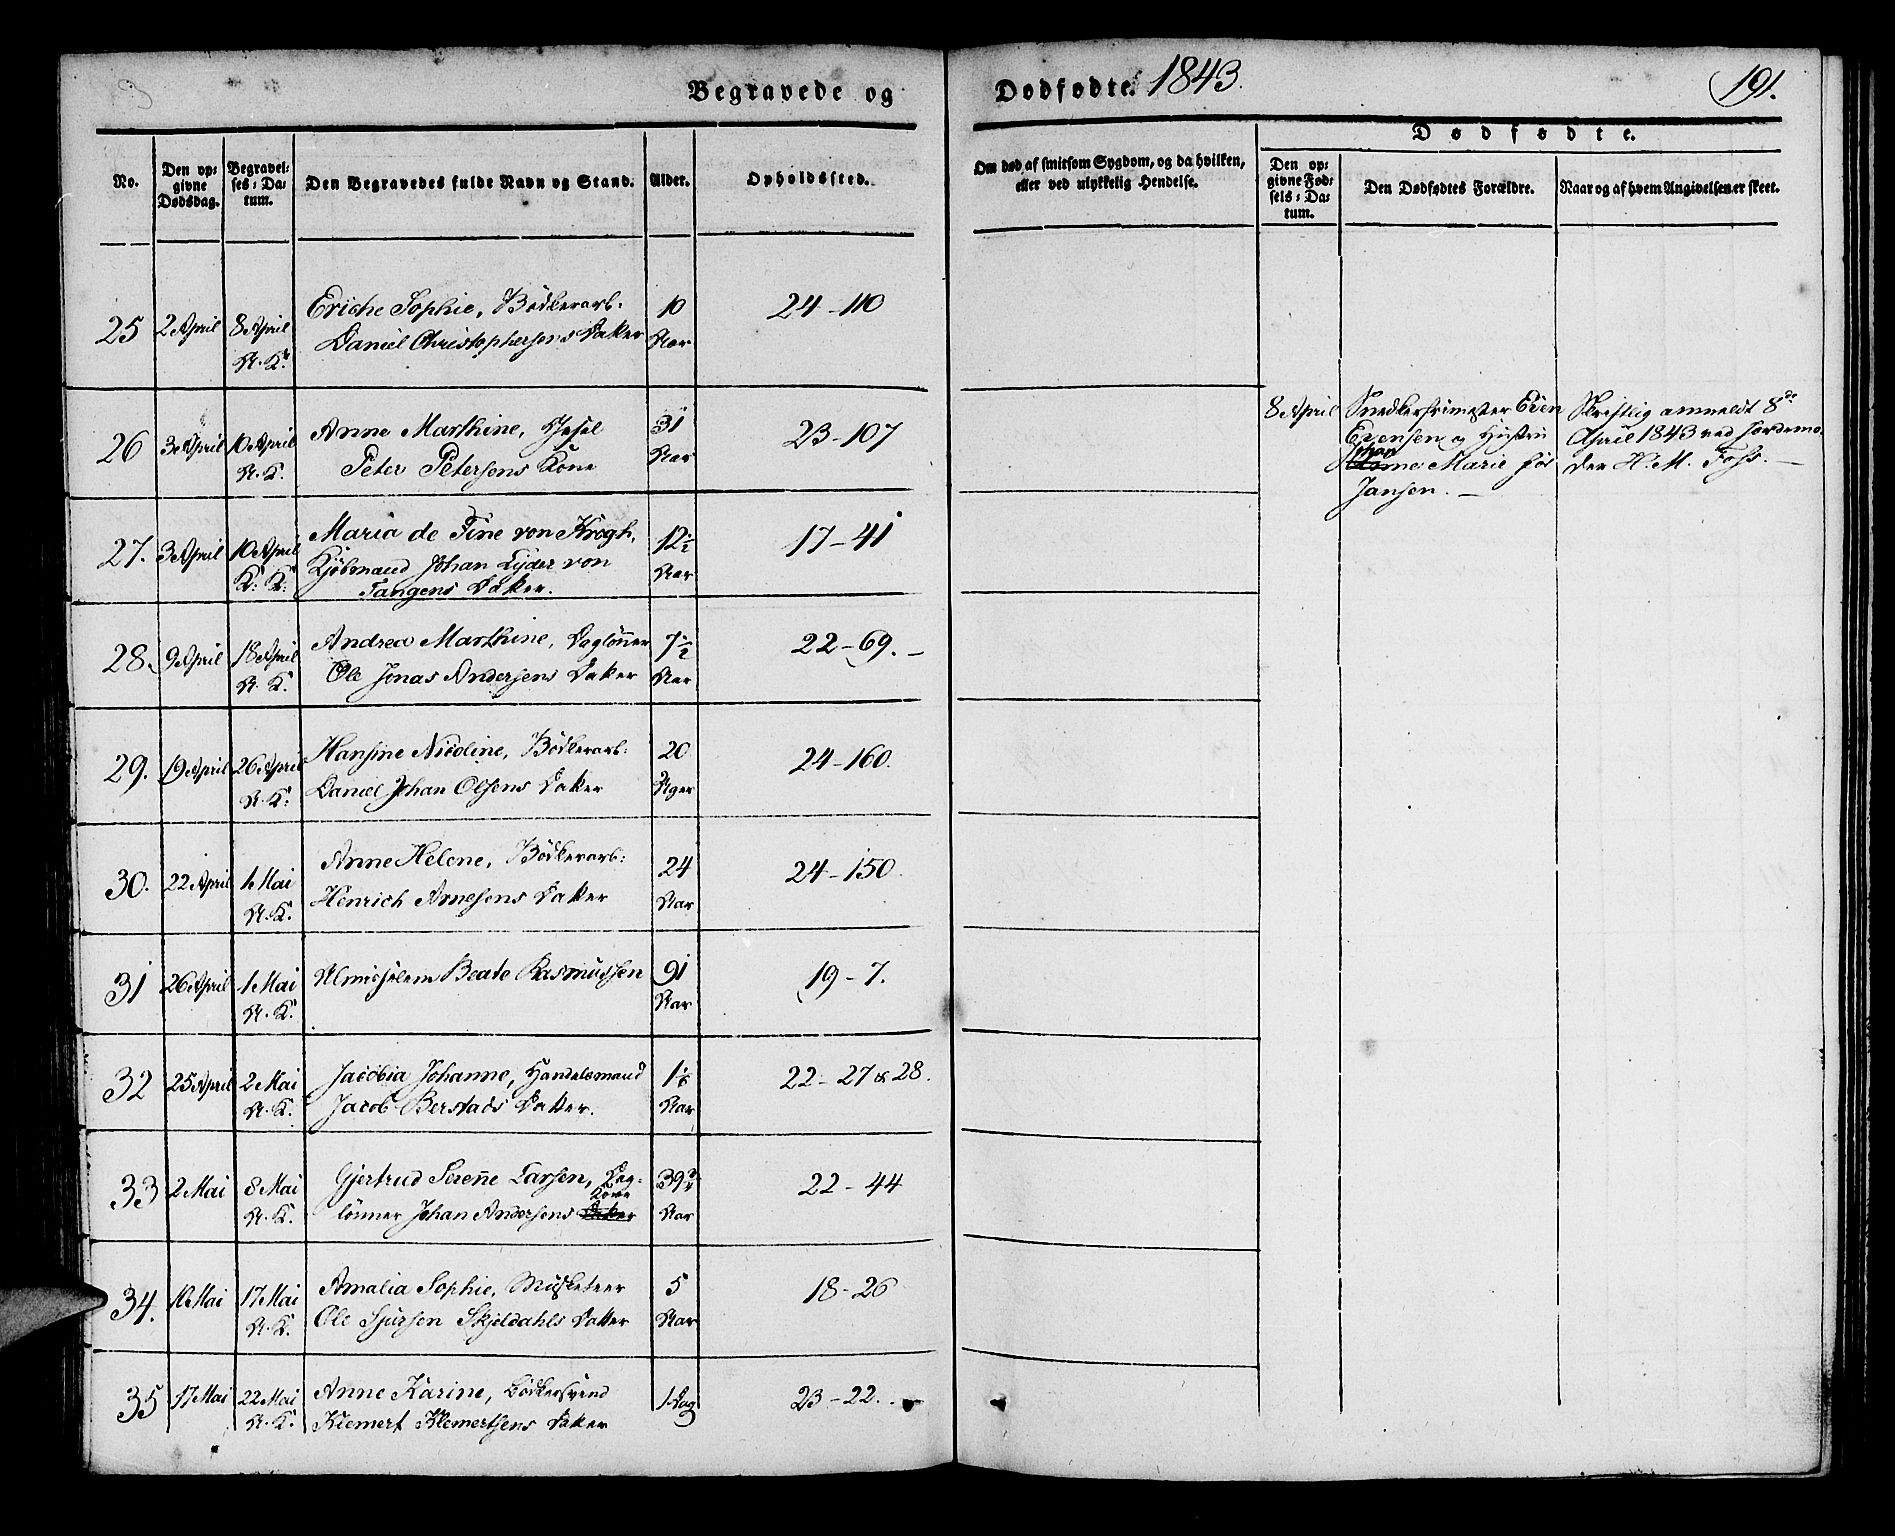 Begravede og
Dødfødte. 1843.
191.
No.
Den op-
givne
Dødsdag.
Begravel-
ses-Da-
tum.
Den Begravedes fulde Navn og Stand.
Alder.
Opholdssted.
Om død af smitsom Sygdom, og da hvilken,
eller ved ulykkelig Hendelse.
Dødfødte.
Den op-
givne Fød-
sels-Da-
tum.
Den Dødfødtes Forældre.
Naar og af hvem Angivelsen er skeet.
25 2 April 8 April Eriche Sophie, Bödkerarb: 10 24-110
A. K. Daniel Christophersens Datter Aar
26 3 April 10 April Anne Marthine, 31 23-107
A. K. Peter Petersens Kone Aar
8 April Snedkersvimester Even
Evensen og Hustru
Marie fød
Jansen.
Skriftlig anmeldt 8de
April 1843 ved Jordemo-
der H. M. Foss.
27. 3 April 10 April Maria de Fine von Krogh, 12½ 17-41
K. K. Kjöbmand Johan Lyder von Aar
Tangens Datter.
28. 9 April 18 April Andrea Marthine, Daglönner 7½ 22-69.
A. K. Ole Jonas Andersens Datter Aar
29. 19 April 26 April Hansine Nicoline, Bödkerarb: 20 24-160.
A. K. Daniel Johan Olsens Datter Uger
30. 22 April 1 Mai Anne Helene, Bödkerarb: 24 24-150.
A. K. Henrich Arnesens Datter Aar
31 26 April 1 Mai Almisselem Beate Rasmussen 91 19-7.
A. K. Aar
32 25 April 2 Mai Jacobia Johanne, Handelsmand 22-27 & 28.
A. K. Jacob Berstads Datter. Aar
33 2 Mai 8 Mai Gjertrud Serenne Larsen, Dag- 39¾ 22-44
Kone
A. K. lönner Johan Andersens Datter Aar
34. 10 Mai 17 Mai Amalia Sophie, Musketeer 5 18-26
A. K. Ole Sjursen Skjeldahls Datter Aar
35 17 Mai 22 Mai Anne Karine, Bödkersvend 1 Dag 23-22.
A. K. Klemert Klemertsens Datter